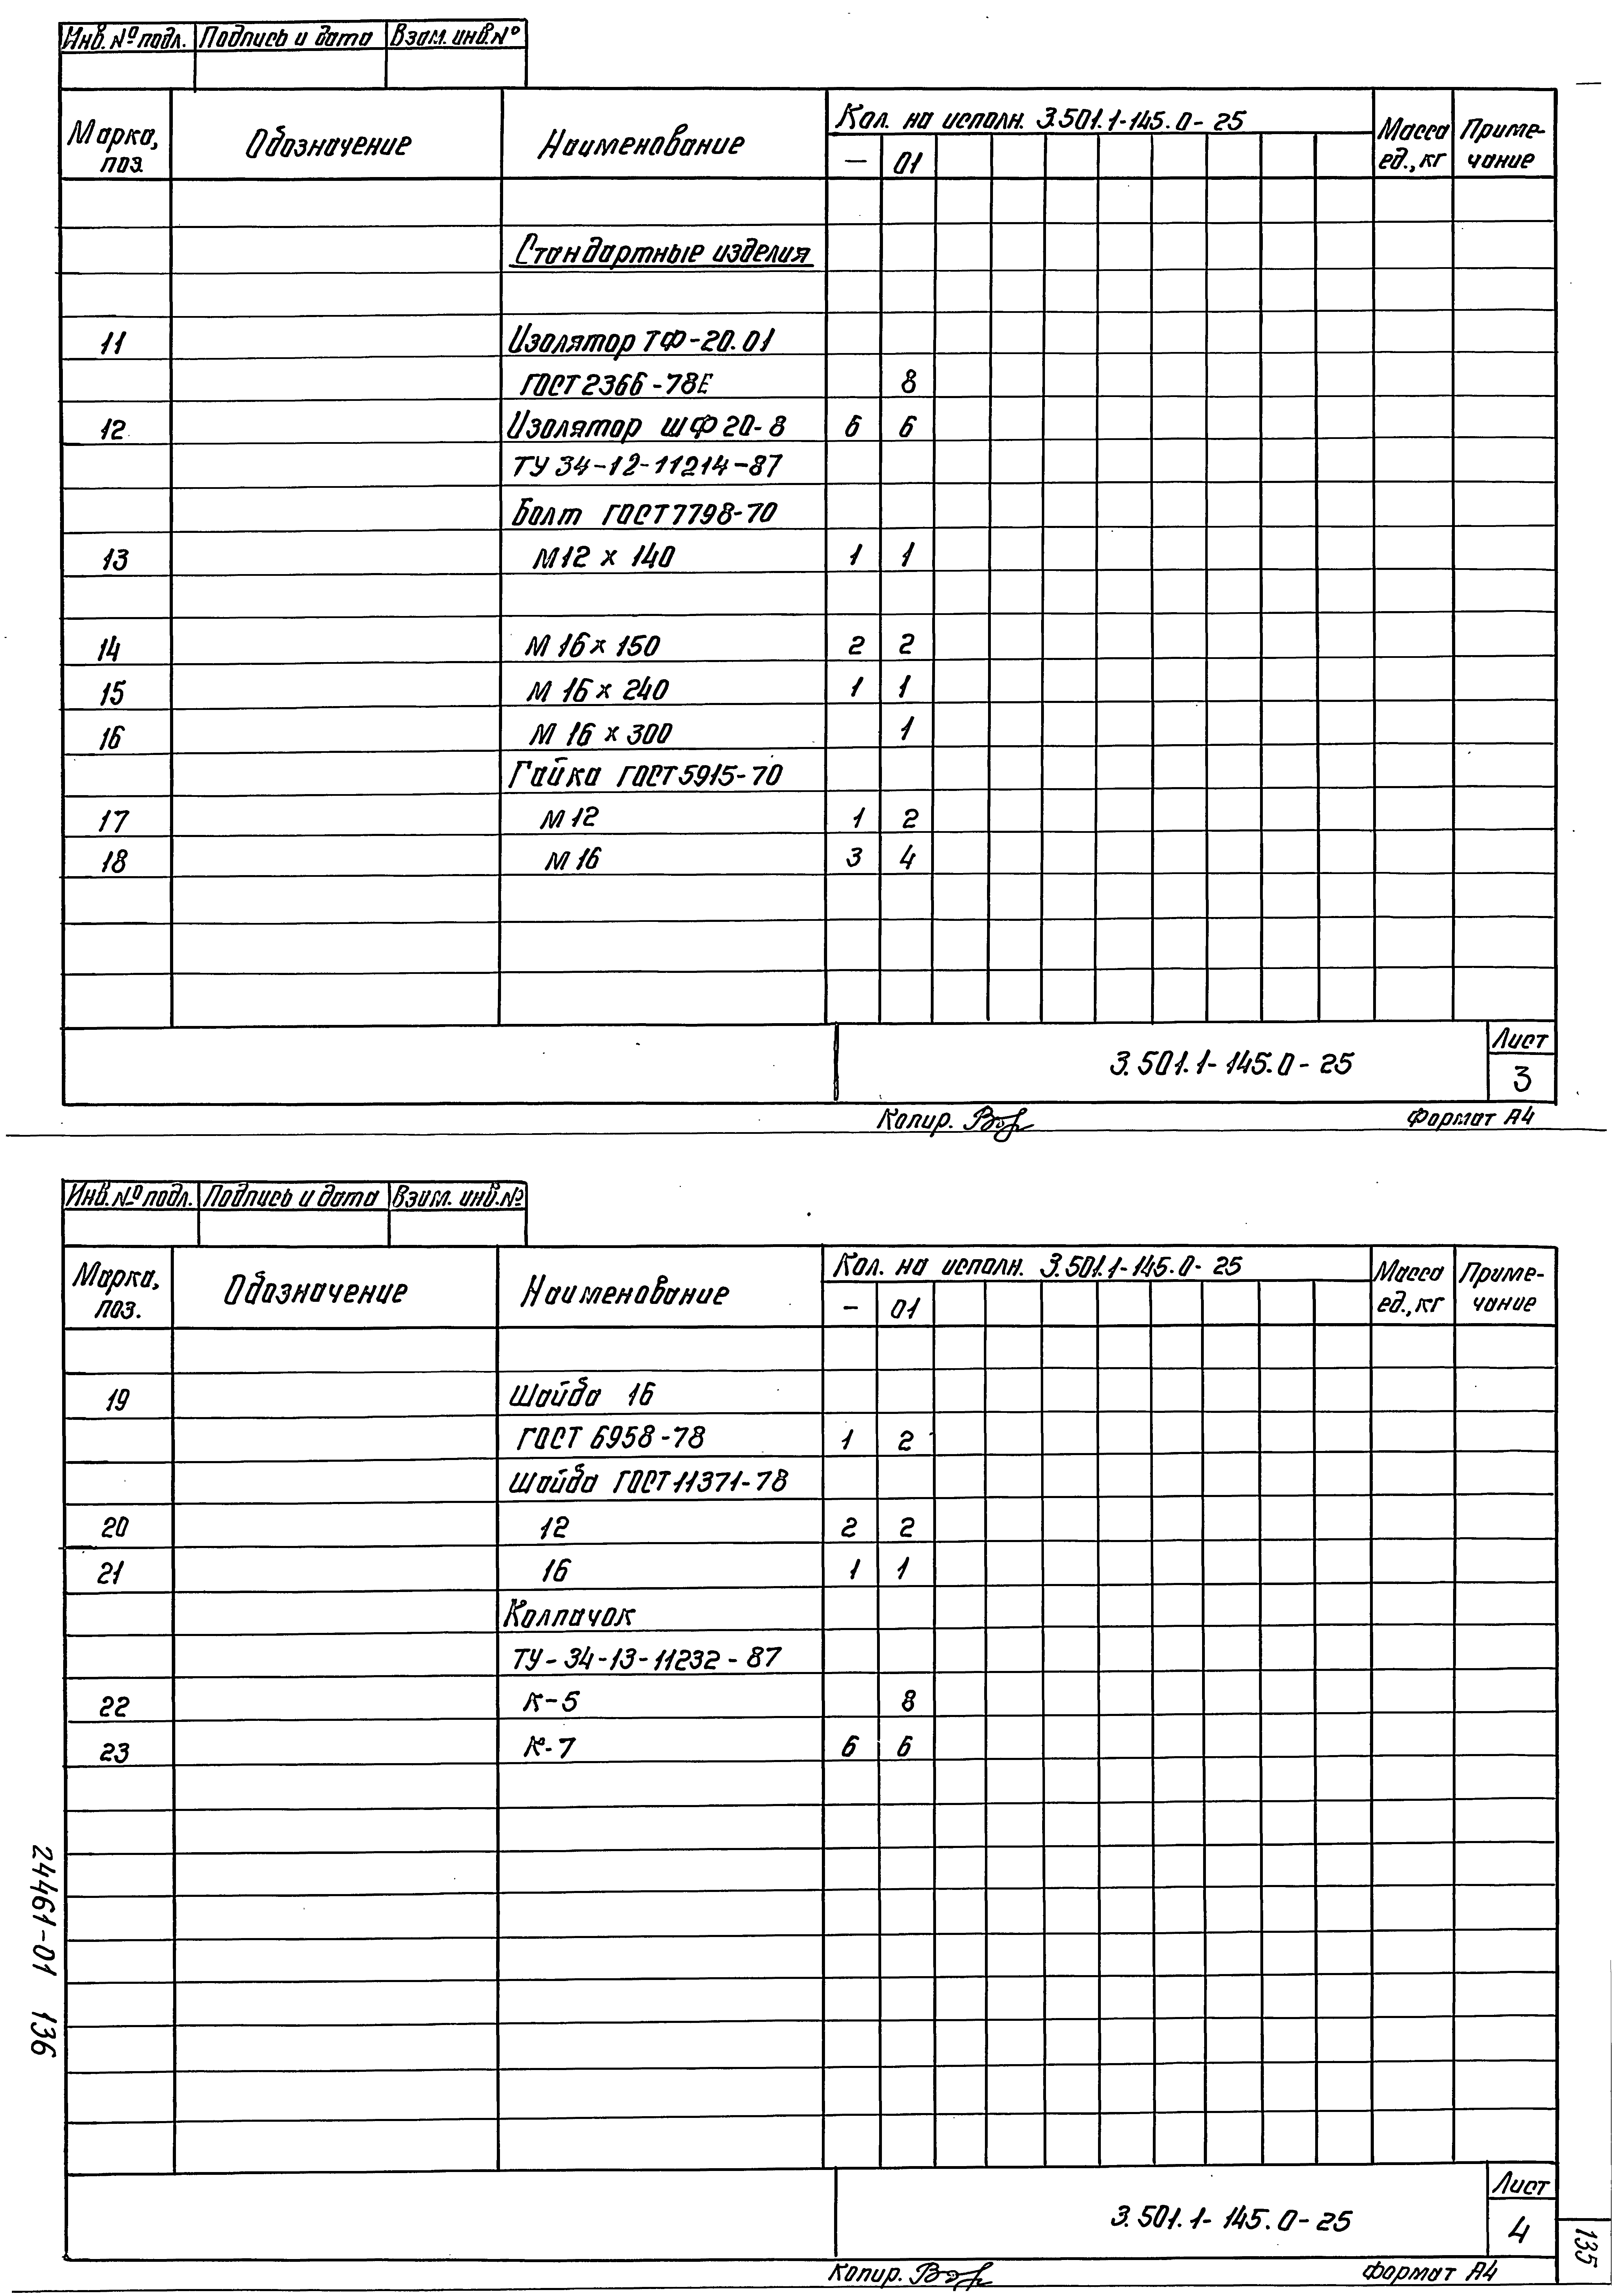 Инв. № подл. Подпись и дата Взам. инв. №
Марка, поз. Обозначение Наименование Кол. на исполн. 3.501.1-145.0-25 Масса ед., кг Примечание
— 01
Стандартные изделия
11 Изолятор ТФ-20.01
ГОСТ 2366-78Е 8
12 Изолятор ШФ 20-8 6 6
ТУ 34-12-11214-87
Болт ГОСТ 7798-70
13 М12 х 140 1 1
14 М 16 х 150 2 2
15 М 16 х 240 1 1
16 М 16 х 300 1
Гайка ГОСТ 5915-70
17 М 12 1 2
18 М 16 3 4
3.501.1-145.0-25
Лист
3
Копир. Формат А4
Инв. № подл. Подпись и дата Взам. инв. №
Марка, поз. Обозначение Наименование Кол. на исполн. 3.501.1-145.0-25 Масса ед., кг Примечание
— 01
19 Шайба 16
ГОСТ 6958-78 1 2
Шайба ГОСТ 11371-78
20 12 2 2
21 16 1 1
Колпачок
ТУ-34-13-11232-87
22 К-5 8
23 К-7 6 6
24461-01 136
3.501.1-145.0-25
Лист
4
135
Копир. Формат А4